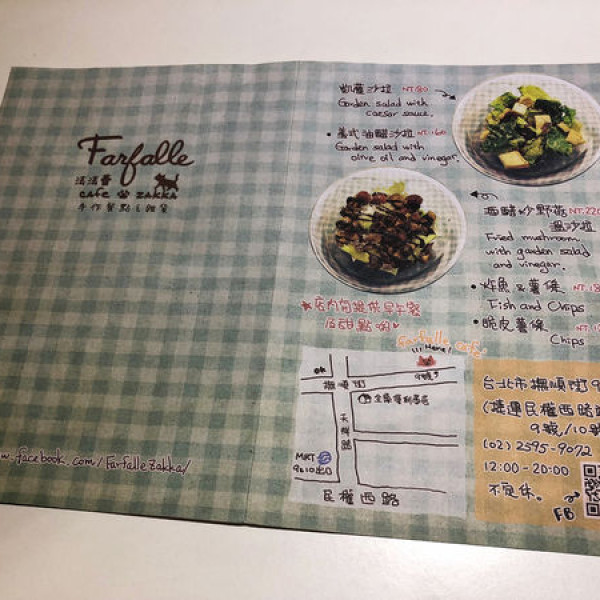 Farfalle
法法蕾
cafe & ZAKKA
手作餐點&雜貨
w.facebook.com/FarfalleZakka/
凱薩沙拉 NT.180
Garden salad with
caesar sauce.
• 義式油醋沙拉 NT.160
Garden salad with
olive oil and vinegar.
酒醋炒野菇 NT.220
溫沙拉
Fried mushroom
with garden salad
and vinegar.
• 炸魚&薯條 NT.18
Fish and Chips
• 脆皮薯條 NT.1
Chips
*店內有提供早午餐
及甜點喲♥
Farfalle cafe
Here!
9號
OK
撫順街
全集便利商店
天祥路
MRT
9&10出口
民權西路
台北市撫順街9
(捷運民權西路站
9號/10號
(02) 2595-9072
12:00-20:00
不定休。
FB